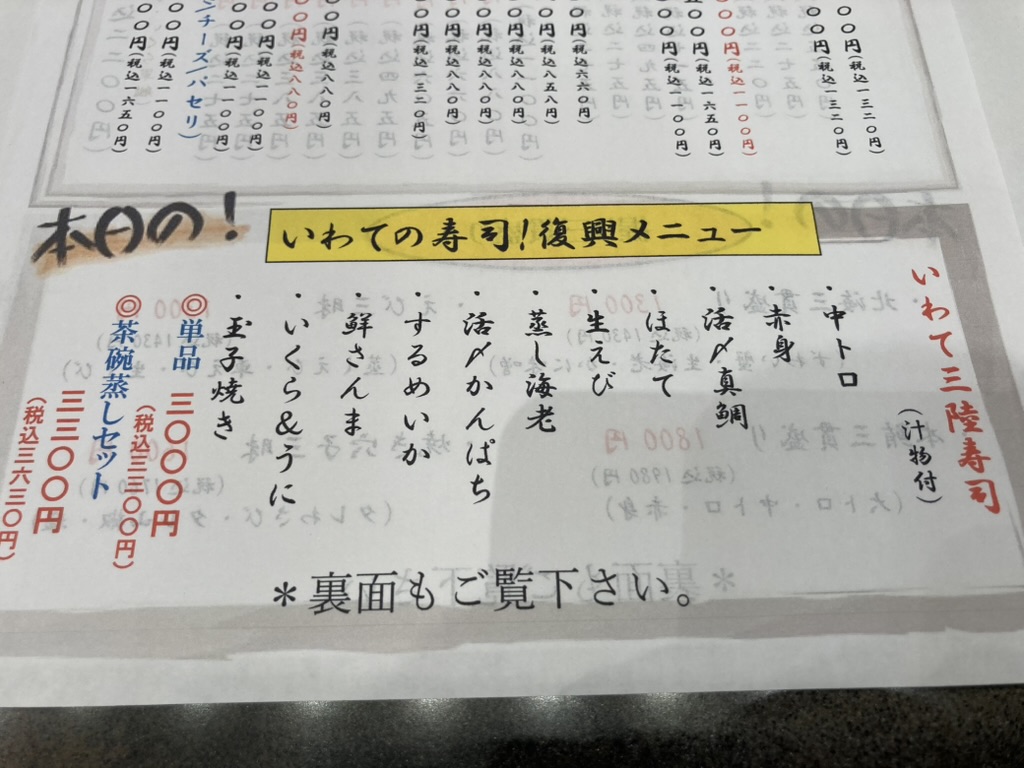 〇〇円(税込一三二〇円)
〇〇円(税込一三二〇円)
〇〇円(税込一一〇〇円)
〇〇円(税込一六五〇円)
〇〇円(税込一一〇〇円)
〇円(税込六六〇円)
〇円(税込八五八円)
〇円(税込八八〇円)
〇円(税込八八〇円)
〇円(税込八八〇円)
〇円(税込一三二〇円)
〇円(税込八八〇円)
円(税込八八〇円)
〇〇円(税込一一〇〇円)
〇〇円(税込一一〇〇円)
ンチーズ/パセリ)
〇〇円(税込一一〇〇円)
〇〇円(税込一六五〇円)
本日の!
いわての寿司!復興メニュー
いわて三陸寿司
(汁物付)
・中トロ
・赤身
・活〆真鯛
・ほたて
・生えび
・蒸し海老
・活〆かんぱち
・するめいか
・鮮さんま
・いくら&うに
・玉子焼き
◎単品 三〇〇〇円
(税込三三〇〇円)
◎茶碗蒸しセット
三三〇〇円
(税込三六三〇円)
*裏面もご覧下さい。